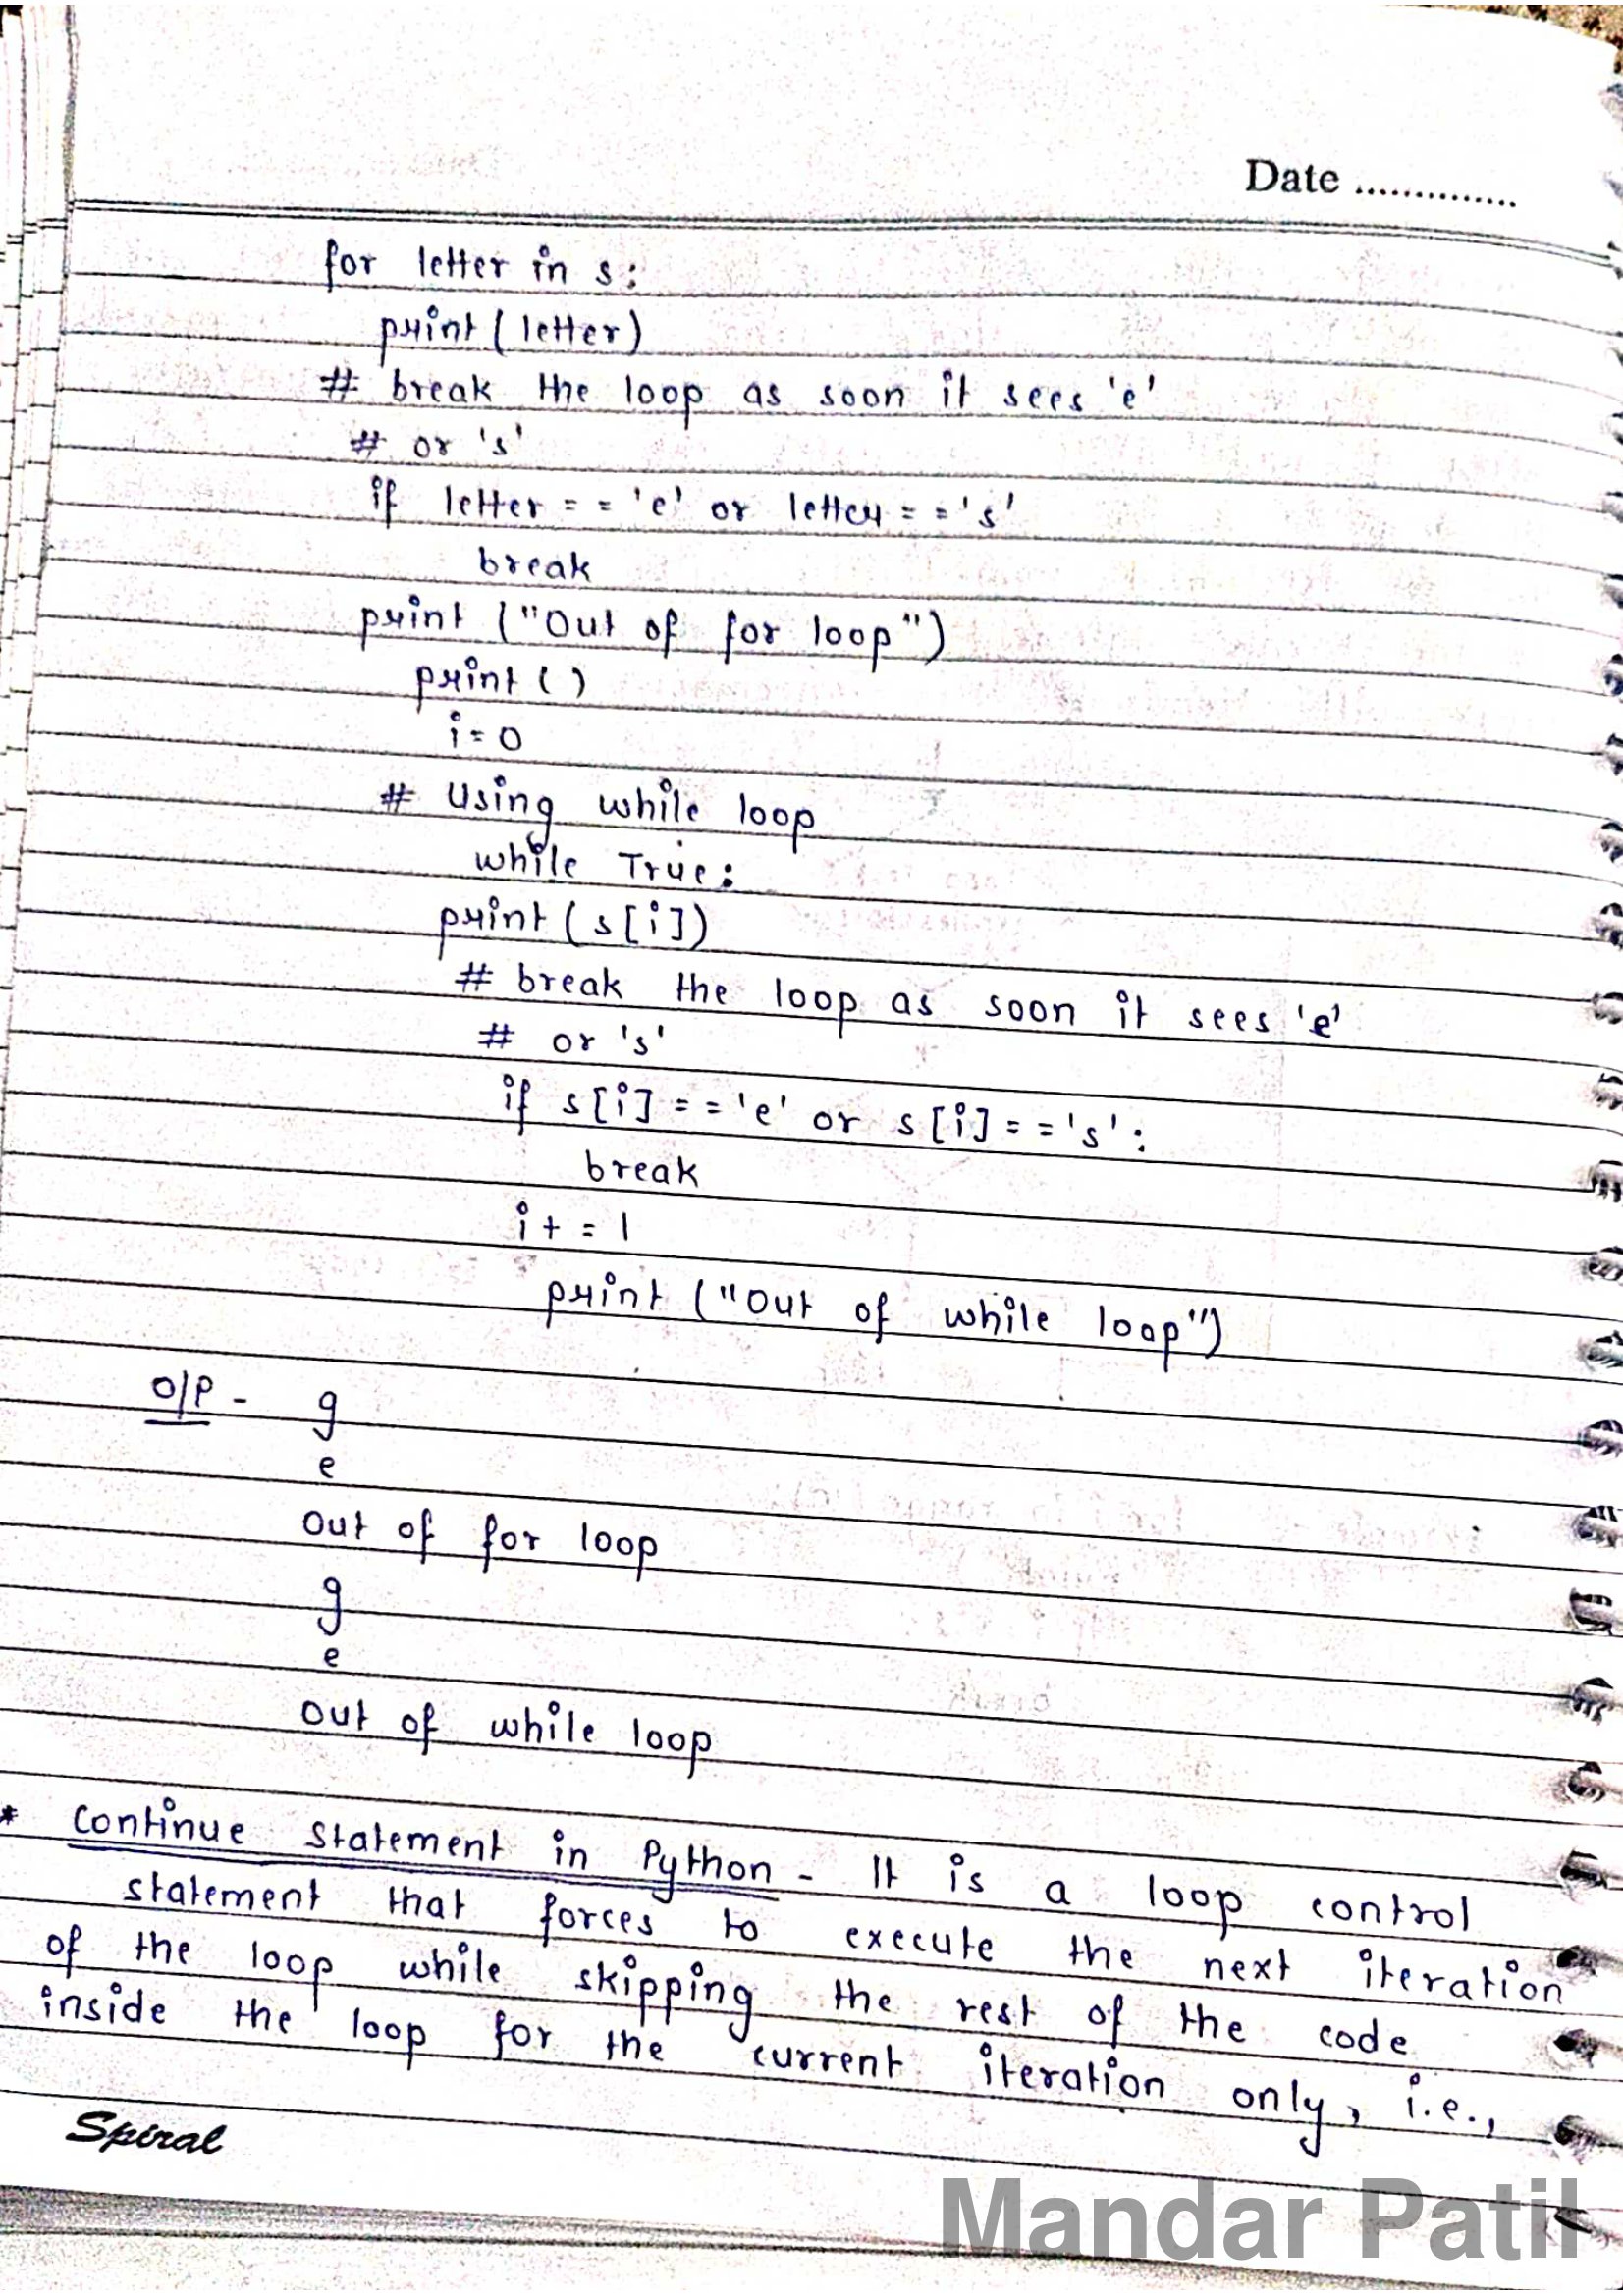 Date ..............
for letter in s:
print (letter)
# break the loop as soon it sees 'e'
# or 's'
if letter = = 'e' or letter = = 's'
break
print ("Out of for loop")
print ( )
i = 0
# Using while loop
while True:
print (s[i])
# break the loop as soon it sees 'e'
# or 's'
if s[i] = = 'e' or s[i] = = 's' :
break
i + = 1
print ("Out of while loop")
O/P - g
e
Out of for loop
g
e
Out of while loop
* Continue Statement in Python - It is a loop control
statement that forces to execute the next iteration
of the loop while skipping the rest of the code
inside the loop for the current iteration only, i.e.,
Spiral
Mandar Patil